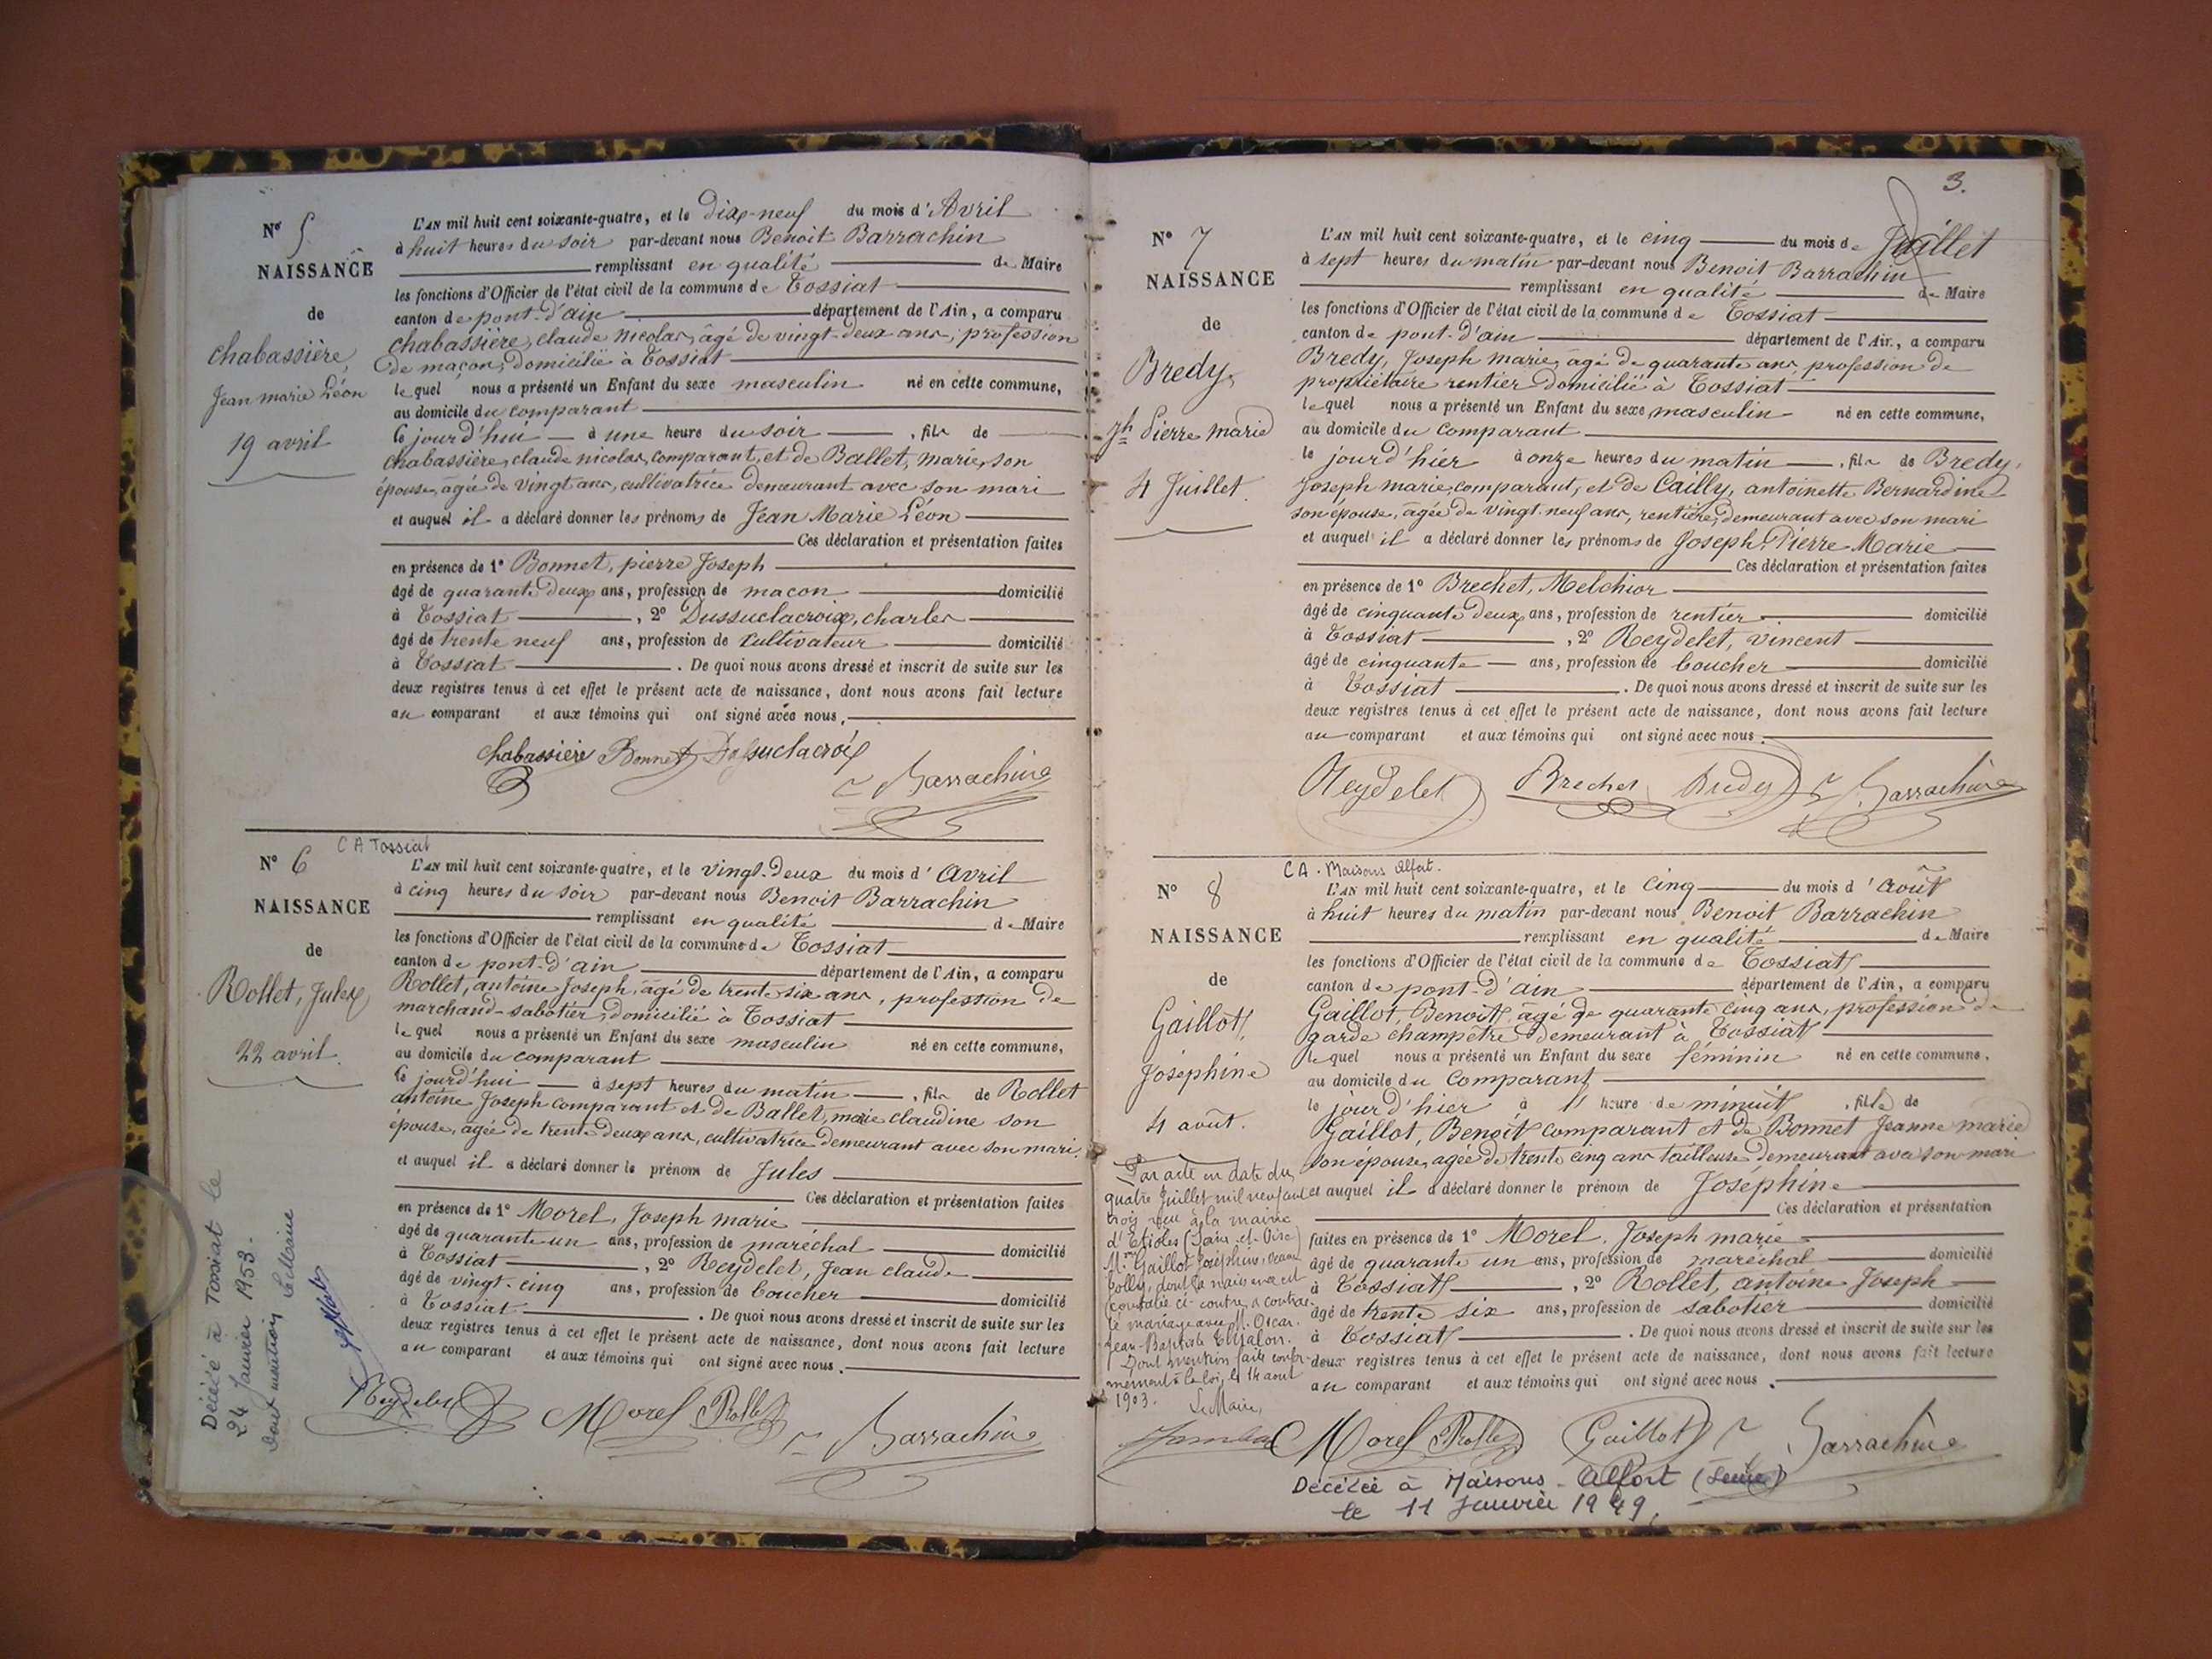 Nº 5
NAISSANCE
de
Chabassière,
Jean marie Léon
19 avril
L'AN mil huit cent soixante-quatre, et le Dix-neuf du mois d'Avril
à huit heures du soir par-devant nous Benoit Barrachin
remplissant en qualité de Maire
les fonctions d'Officier de l'état civil de la commune de Tossiat
canton de pont-d'ain département de l'Ain, a comparu
Chabassière, claude nicolas, âgé de vingt-deux ans, profession
de maçon, domicilié à Tossiat
lequel nous a présenté un Enfant du sexe masculin né en cette commune,
au domicile du comparant
le jourd'hui à une heure du soir, fils de
Chabassière, claude nicolas, comparant, et de Ballet, marie, son
épouse, âgée de vingt ans, cultivatrice demeurant avec son mari
et auquel il a déclaré donner les prénoms de Jean Marie Léon
Ces déclaration et présentation faites
en présence de 1º Bonnet, pierre Joseph
âgé de quarante deux ans, profession de macon domicilié
à Tossiat, 2º Dussuclacroix, charles
âgé de trente neuf ans, profession de cultivateur domicilié
à Tossiat. De quoi nous avons dressé et inscrit de suite sur les
deux registres tenus à cet effet le présent acte de naissance, dont nous avons fait lecture
au comparant et aux témoins qui ont signé avec nous.
Chabassière Bonnet Dussuclacroix
Barrachin
C A Tossiat
Nº 6
NAISSANCE
de
Rollet, Jules
22 avril.
L'AN mil huit cent soixante-quatre, et le vingt-Deux du mois d'Avril
à cinq heures du soir par-devant nous Benoit Barrachin
remplissant en qualité de Maire
les fonctions d'Officier de l'état civil de la commune de Tossiat
canton de pont-d'ain département de l'Ain, a comparu
Rollet, antoine Joseph, âgé de trente six ans, profession de
marchand-sabotier, domicilié à Tossiat
lequel nous a présenté un Enfant du sexe masculin né en cette commune,
au domicile du comparant
le jourd'hui à sept heures du matin, fils de Rollet
antoine Joseph comparant et de Ballet, marie claudine son
épouse, âgée de trente deux ans, cultivatrice demeurant avec son mari.
et auquel il a déclaré donner le prénom de Jules
Ces déclaration et présentation faites
en présence de 1º Morel, Joseph marie
âgé de quarante un ans, profession de maréchal domicilié
à Tossiat, 2º Reydelet, Jean claude
âgé de vingt-cinq ans, profession de boucher domicilié
à Tossiat. De quoi nous avons dressé et inscrit de suite sur les
deux registres tenus à cet effet le présent acte de naissance, dont nous avons fait lecture
au comparant et aux témoins qui ont signé avec nous.
Reydelet Morel Rollet
Barrachin
Décédé à Tossiat le
24 Janvier 1953.
Dont mention
3.
Nº 7
NAISSANCE
de
Bredy,
Jh Pierre marie
4 Juillet.
L'AN mil huit cent soixante-quatre, et le cinq du mois de Juillet
à sept heures du matin par-devant nous Benoit Barrachin
remplissant en qualité de Maire
les fonctions d'Officier de l'état civil de la commune de Tossiat
canton de pont-d'ain département de l'Ain, a comparu
Bredy, Joseph marie, âgé de quarante ans, profession de
propriétaire rentier domicilié à Tossiat
lequel nous a présenté un Enfant du sexe masculin né en cette commune,
au domicile du comparant
le jour d'hier à onze heures du matin, fils de Bredy,
Joseph marie, comparant, et de Cailly, antoinette Bernardine
son épouse, âgée de vingt-neuf ans, rentière, demeurant avec son mari
et auquel il a déclaré donner les prénoms de Joseph, Pierre Marie
Ces déclaration et présentation faites
en présence de 1º Brechet, Melchior
âgé de cinquante deux ans, profession de rentier domicilié
à Tossiat, 2º Reydelet, vincent
âgé de cinquante ans, profession de boucher domicilié
à Tossiat. De quoi nous avons dressé et inscrit de suite sur les
deux registres tenus à cet effet le présent acte de naissance, dont nous avons fait lecture
au comparant et aux témoins qui ont signé avec nous.
Reydelet Brechet Bredy Barrachin
C A. Maisons Alfort.
Nº 8
NAISSANCE
de
Gaillot,
Joséphine
4 août.
L'AN mil huit cent soixante-quatre, et le cinq du mois d'Août
à huit heures du matin par-devant nous Benoit Barrachin
remplissant en qualité de Maire
les fonctions d'Officier de l'état civil de la commune de Tossiat
canton de pont-d'ain département de l'Ain, a comparu
Gaillot, Benoit, âgé de quarante cinq ans, profession de
garde champêtre demeurant à Tossiat
lequel nous a présenté un Enfant du sexe féminin né en cette commune,
au domicile du comparant
le jour d'hier à heure de minuit, fille de
Gaillot, Benoit comparant et de Bonnet Jeanne marie
son épouse, agée de trente cinq ans tailleuse demeurant avec son mari
et auquel il a déclaré donner le prénom de Joséphine
Ces déclaration et présentation
faites en présence de 1º Morel, Joseph marie
âgé de quarante un ans, profession de maréchal domicilié
à Tossiat, 2º Rollet, antoine Joseph
âgé de trente six ans, profession de sabotier domicilié
à Tossiat. De quoi nous avons dressé et inscrit de suite sur les
deux registres tenus à cet effet le présent acte de naissance, dont nous avons fait lecture
au comparant et aux témoins qui ont signé avec nous.
Par acte en date du
quatre Juillet mil neuf cent
trois reçu à la mairie
d'Etioles (Seine-et-Oise)
Gaillot Joséphine,
dont la naissance est
constatée ci-contre, a contrac-
té mariage avec M. Oscar
Jean-Baptiste
Dont mention faite confor-
mément à la loi, le 14 aout
1903.
Le Maire,
Morel Rollet Gaillot Barrachin
Décédée à Maisons-Alfort (Seine)
le 11 Janvier 1949.